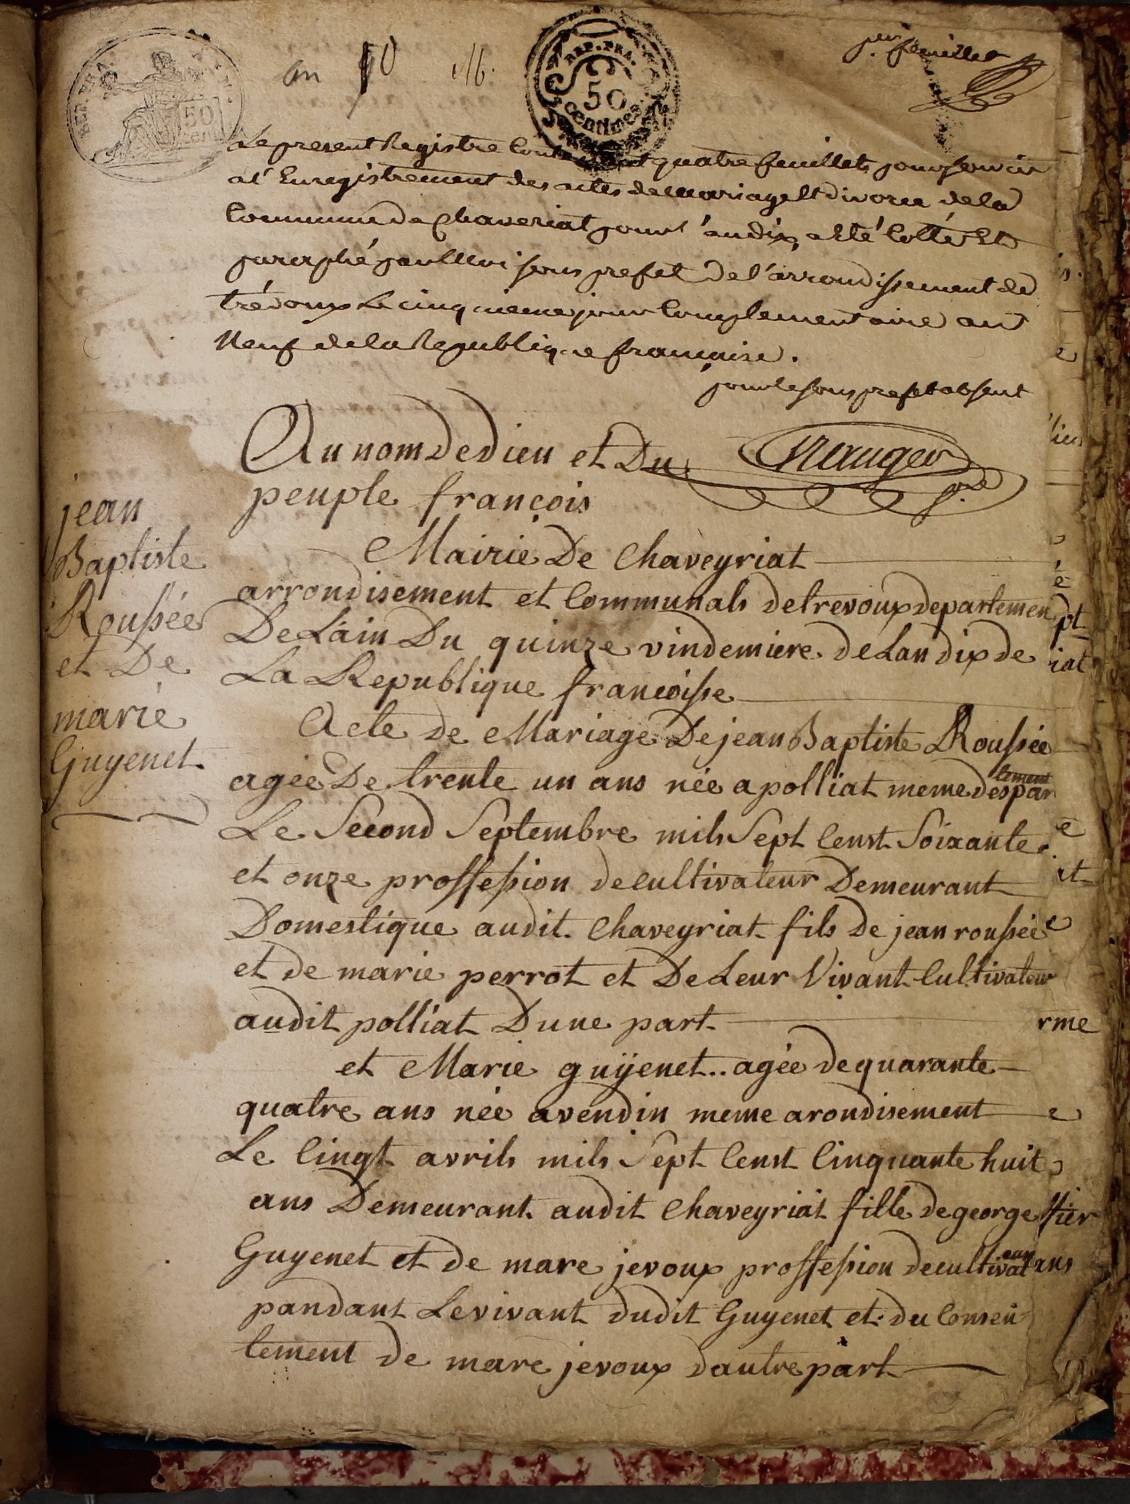 an 10
REP. FRA.
50
centimes
REP. FRA.
50
cen
per feuillet
Le present Registre Contenant quatre feuillets pour servir
a l'Enregistrement des actes de mariage et divorce de la
Commune de Chaveriat pour l'an dix, a eté Cotté et
paraphé par Moi sous prefet de l'arrondissement de
trévoux Le cinquieme jour Complementaire an
Neuf de la Republique francaise.
pour le sous prefet absent
Au nom De dieu et Du
peuple françois
Mairie De Chaveyriat
arrondisement et Communals de trevoux departemen
De Lain Du quinze vindemiere de Lan dix de
La Republique francoisse
jean
Baptiste
Roussée
et De
marie
Guyenet
Acte de Mariage De jean Baptiste Roussée
agée De trente un ans née a polliat meme despar
tement
Le Second Septembre mils Sept Censt Soixante
et onze proffession de cultivateur Demeurant
Domestique audit Chaveyriat fils De jean roussée
et de marie perrot et De Leur Vivant Cultivateur
audit polliat Dune part
et Marie guÿenet.. agée de quarante
quatre ans née a vendin meme arondisement
Le Cingt avrils mils Sept Censt Cinquante huit
ans Demeurant audit Chaveyriat fille de george
Guyenet et de mare jevoux proffession de cultivat
eur
pandant Le vivant dudit Guyenet et du Consen
tement de mare jevoux dautre part
pt
iat
it
rme
ans